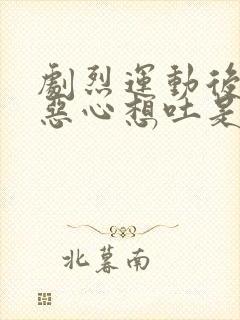 劇烈運動後
惡心想吐是
北暮南